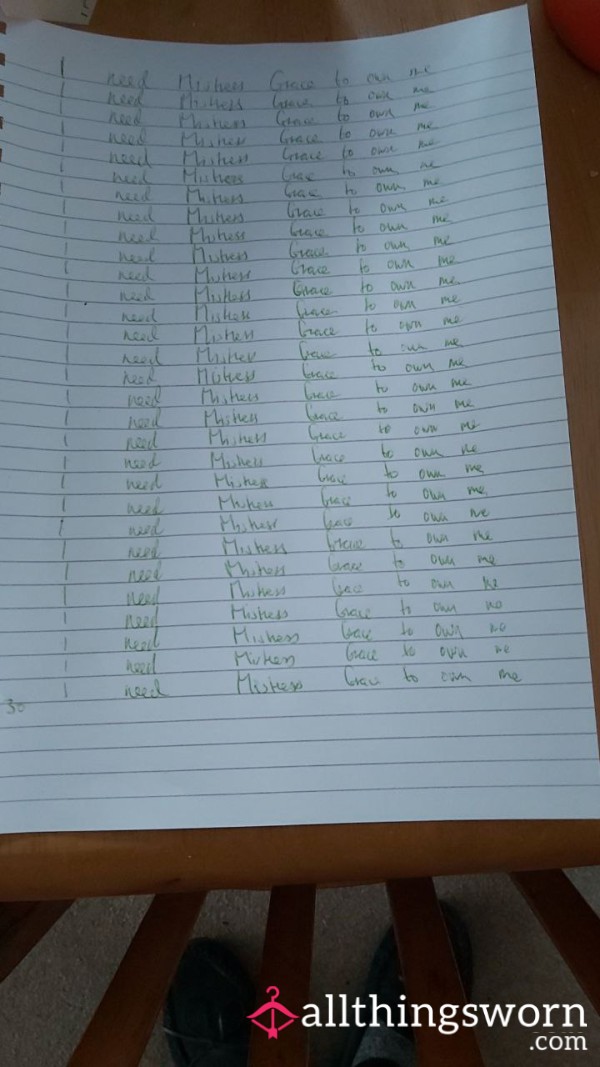 I need Mistress Grace to own me
I need Mistress Grace to own me
I need Mistress Grace to own me
I need Mistress Grace to own me
I need Mistress Grace to own me
I need Mistress Grace to own me
I need Mistress Grace to own me
I need Mistress Grace to own me
I need Mistress Grace to own me
I need Mistress Grace to own me
I need Mistress Grace to own me
I need Mistress Grace to own me
I need Mistress Grace to own me
I need Mistress Grace to own me
I need Mistress Grace to own me
I need Mistress Grace to own me
I need Mistress Grace to own me
I need Mistress Grace to own me
I need Mistress Grace to own me
I need Mistress Grace to own me
I need Mistress Grace to own me
I need Mistress Grace to own me
I need Mistress Grace to own me
I need Mistress Grace to own me
I need Mistress Grace to own me
I need Mistress Grace to own me
I need Mistress Grace to own me
I need Mistress Grace to own me
I need Mistress Grace to own me
I need Mistress Grace to own me
30
allthingsworn
.com